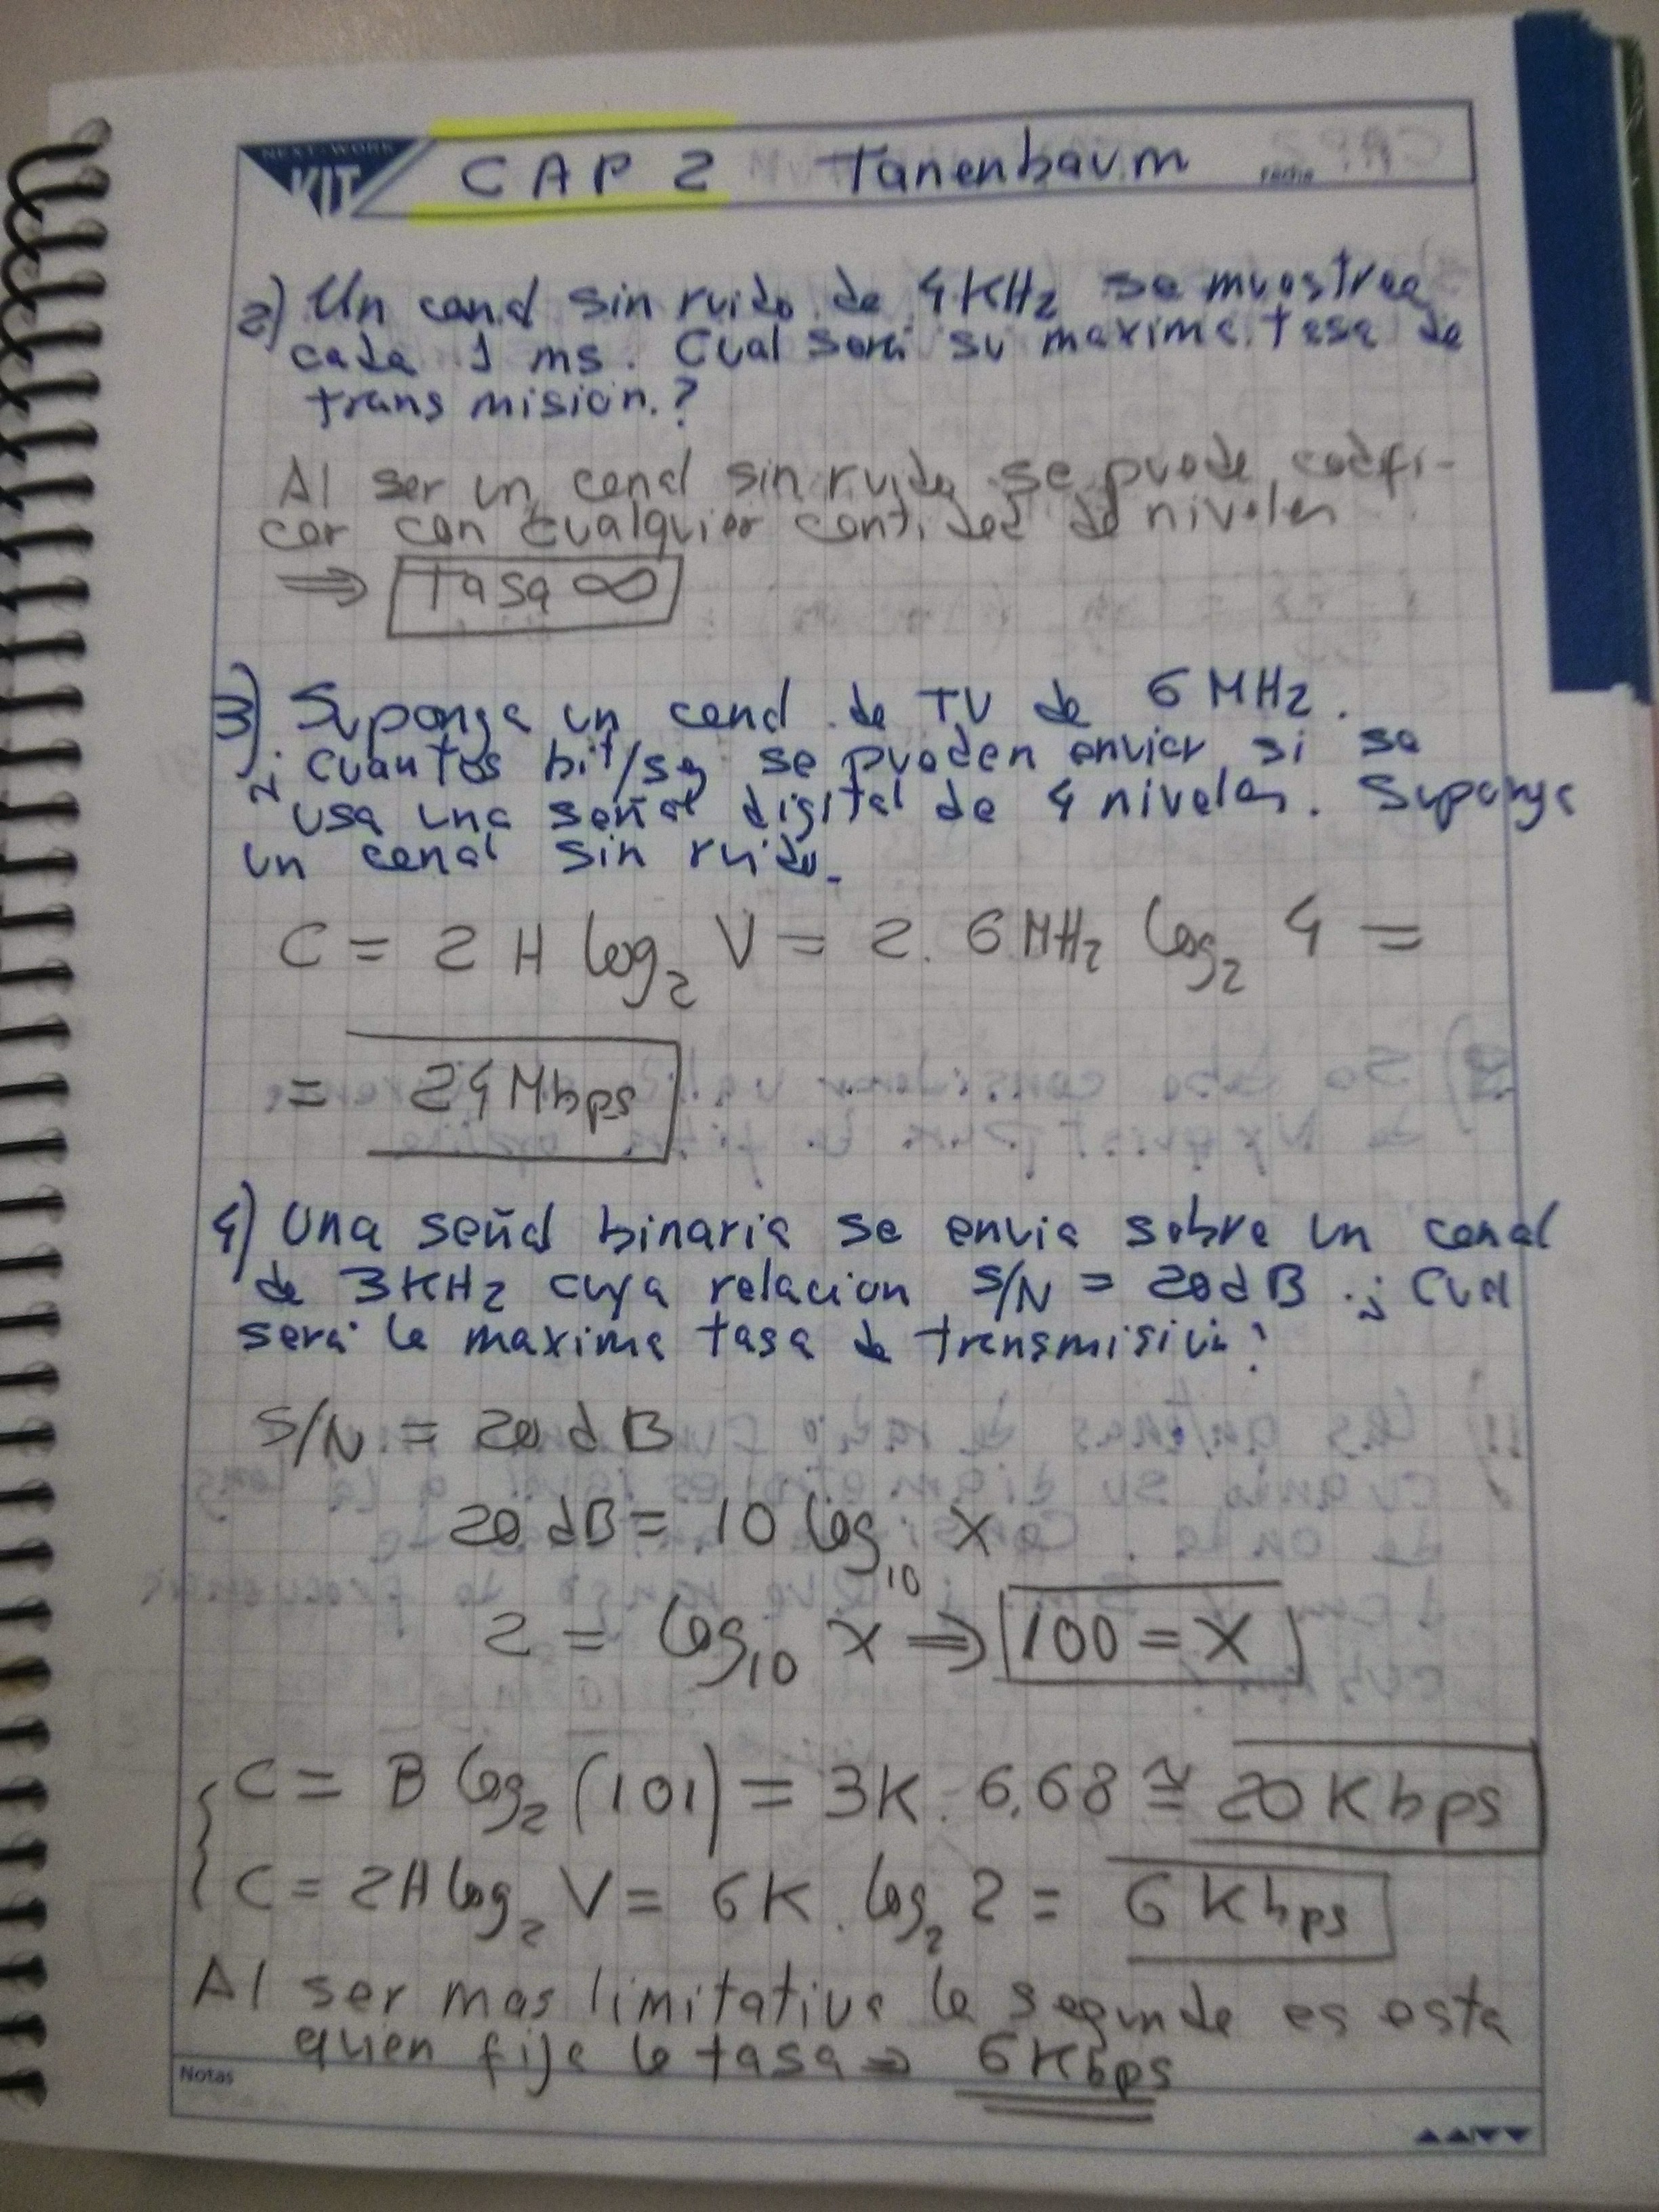 NEXT-WORK
KIT
CAP 2 Tanenbaum
Fecha
2) Un canal sin ruido de 4KHz se muestrea
cada 1 ms. Cual será su maxima tasa de
transmision.?
Al ser un canal sin ruido se puede codifi-
car con cualquier cantidad de niveles
⇒ Tasa ∞
3) Suponga un canal de TV de 6 MHz.
¿Cuantos bit/sg se pueden enviar si se
usa una señal digital de 4 niveles. Suponga
un canal sin ruido.
C = 2 H log₂ V = 2. 6 MHz log₂ 4 =
= 24 Mbps
4) Una señal binaria se envia sobre un canal
de 3KHz cuya relacion S/N = 20 dB. ¿Cual
será la maxima tasa de transmision?
S/N = 20 dB
20 dB = 10 log₁₀ X
2 = log₁₀ X ⇒ 100 = X
C = B log₂ (101) = 3K. 6,68 ≅ 20 Kbps
C = 2H log₂ V = 6K. log₂ 2 = 6 Kbps
Al ser mas limitativa la segunda es esta
quien fija la tasa ⇒ 6 Kbps
Notas